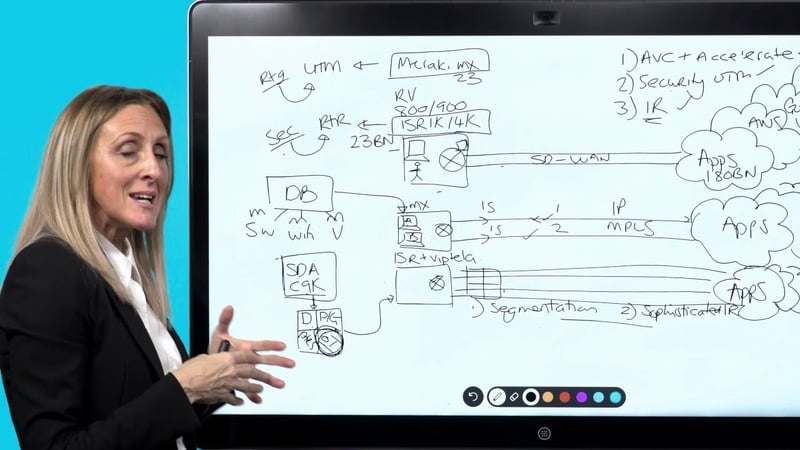 Rtg UTM ← Meraki. mx
23
RV
800/900
Sec RtR ← ISR1K/4K
23BN
SD-WAN
Apps
180BN
1) AVC + Accelerate
2) Security UTM ✓
3) IR ✓
AWS
DB
m m m
SW Wifi V
MX
A
B
1S 1 IP
1S 2 MPLS
Apps
ISR + viptela
SDA
C9K
D
Apps
1) Segmentation 2) Sophisticated IR